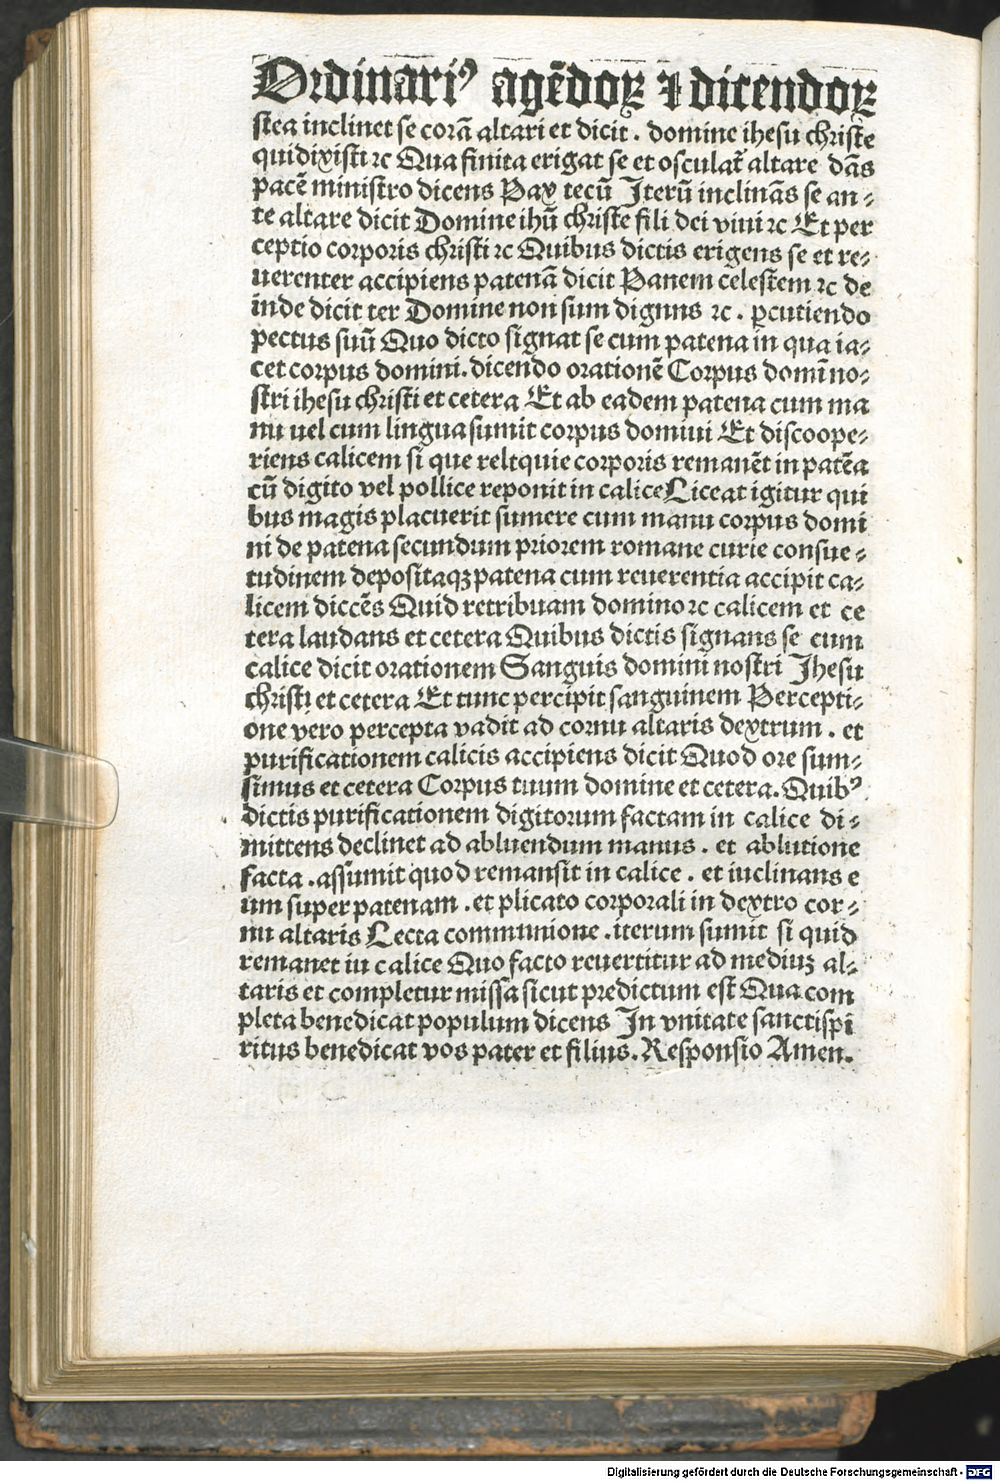 Ordinariꝰ agēdoꝝ ⁊ dicendoꝝ
stea inclinet se corā altari et dicit . domine ihesu christe
quidixisti ⁊c Qua finita erigat se et osculat᷑ altare dās
pacē ministro dicens Pax tecū Iterū inclinās se an⸗
te altare dicit Domine ihū christe fili dei viui ⁊c Et per
ceptio corporis christi ⁊c Quibus dictis erigens se et re⸗
uerenter accipiens patenā dicit Panem celestem ⁊c de
inde dicit ter Domine non sum dignus ⁊c . ꝑcutiendo
pectus suū Quo dicto signat se cum patena in qua ia⸗
cet corpus domini. dicendo orationē Corpus domī no⸗
stri ihesu christi et cetera Et ab eadem patena cum ma
nu uel cum lingua sumit corpus domiui Et discoope⸗
riens calicem si que reltquie corporis remanēt in patēa
cū digito vel pollice reponit in calice Liceat igitur qui
bus magis placuerit sumere cum manu corpus domi
ni de patena secundum priorem romane curie consue⸗
tudinem depositaqꝫ patena cum reuerentia accipit ca⸗
licem diccēs Quid retribuam domino ⁊c calicem et ce
tera laudans et cetera Quibus dictis signans se cum
calice dicit orationem Sanguis domini nostri Ihesu
christi et cetera Et tunc percipit sanguinem Percepti⸗
one vero percepta vadit ad cornu altaris dextrum . et
purificationem calicis accipiens dicit Quod ore sum⸗
simus et cetera Corpus tuum domine et cetera. Quibꝰ
dictis purificationem digitorum factam in calice di⸗
mittens declinet ad abluendum manus . et ablutione
facta . assumit quod remansit in calice . et iuclinans e
um super patenam . et plicato corporali in dextro cor⸗
nu altaris Lecta communione . iterum sumit si quid
remanet iu calice Quo facto reuertitur ad mediuꝫ al⸗
taris et completur missa sicut predictum est Qua com
pleta benedicat populum dicens In vnitate sancti spi
ritus benedicat vos pater et filius. Responsio Amen.
Digitalisierung gefördert durch die Deutsche Forschungsgemeinschaft - DFG